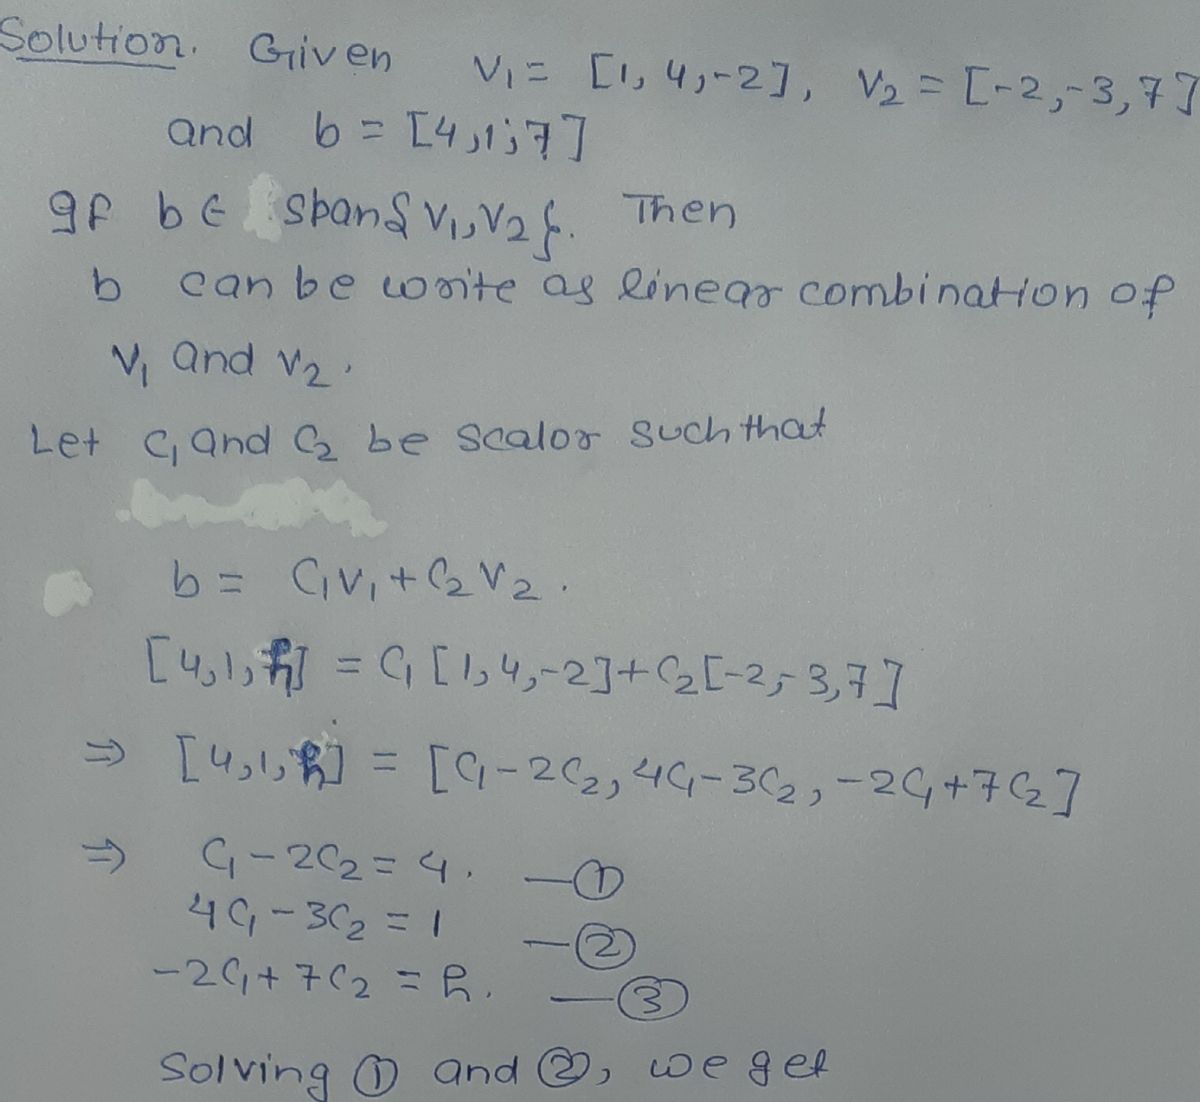 Solution. Given V₁ = [1, 4, -2], V₂ = [-2, -3, 7]
and b = [4, 1, 7]
If b ∈ span{V₁, V₂}. Then
b can be write as linear combination of
V₁ and V₂.
Let C₁ and C₂ be scalor such that
b = C₁V₁ + C₂V₂.
[4, 1, h] = C₁[1, 4, -2] + C₂[-2, -3, 7]
⇒ [4, 1, h] = [C₁ - 2C₂, 4C₁ - 3C₂, -2C₁ + 7C₂]
⇒ C₁ - 2C₂ = 4. —①
4C₁ - 3C₂ = 1 —②
-2C₁ + 7C₂ = h. —③
Solving ① and ②, we get